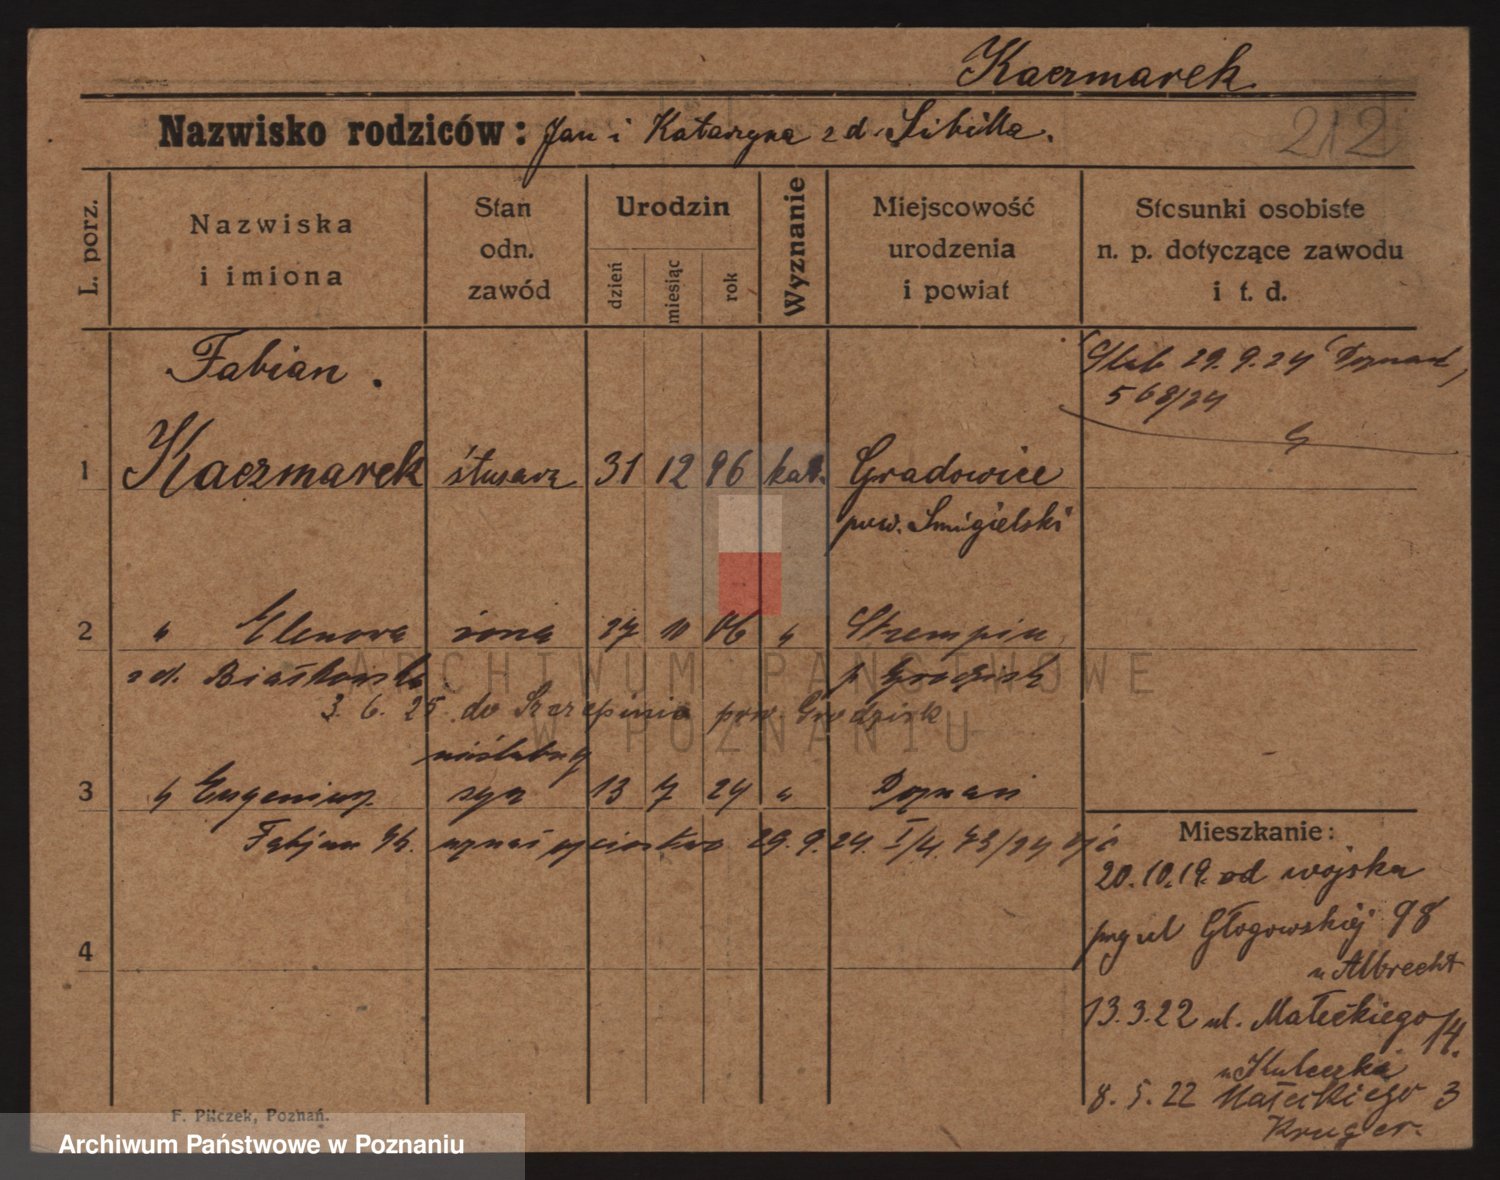 Kaczmarek
Nazwisko rodziców: Jan i Katarzyna z d. Sibilla.
212
L. porz.
Nazwiska i imiona
Stan odn. zawód
Urodzin
dzień
miesiąc
rok
Wyznanie
Miejscowość urodzenia i powiat
Stosunki osobiste n. p. dotyczące zawodu i t. d.
Fabian.
29.9.24 Poznań,
568/24
1 Kaczmarek ślusarz 31 12 96 kat. Gradowice
pow. Śmigielski
2 " Elenora żona 27 " Strempin
z d. Białkowska p. Grodzisk
3. 6. 25 do pow Grodzisk
nieślubny
3 " Eugeniusz syn 13 7 24 " Poznań
Fabjan K. uznał ojcostwo 29.9.24. 73/24
4
Mieszkanie:
20.10.19. od wojska
ul Głogowskiej 98
u Albrecht
13.3.22 ul. Małeckiego 14.
u Kuleczka
8. 5. 22 Małeckiego 3
Kruger.
F. Pilczek, Poznań.
ARCHIWUM PAŃSTWOWE
W POZNANIU
Archiwum Państwowe w Poznaniu